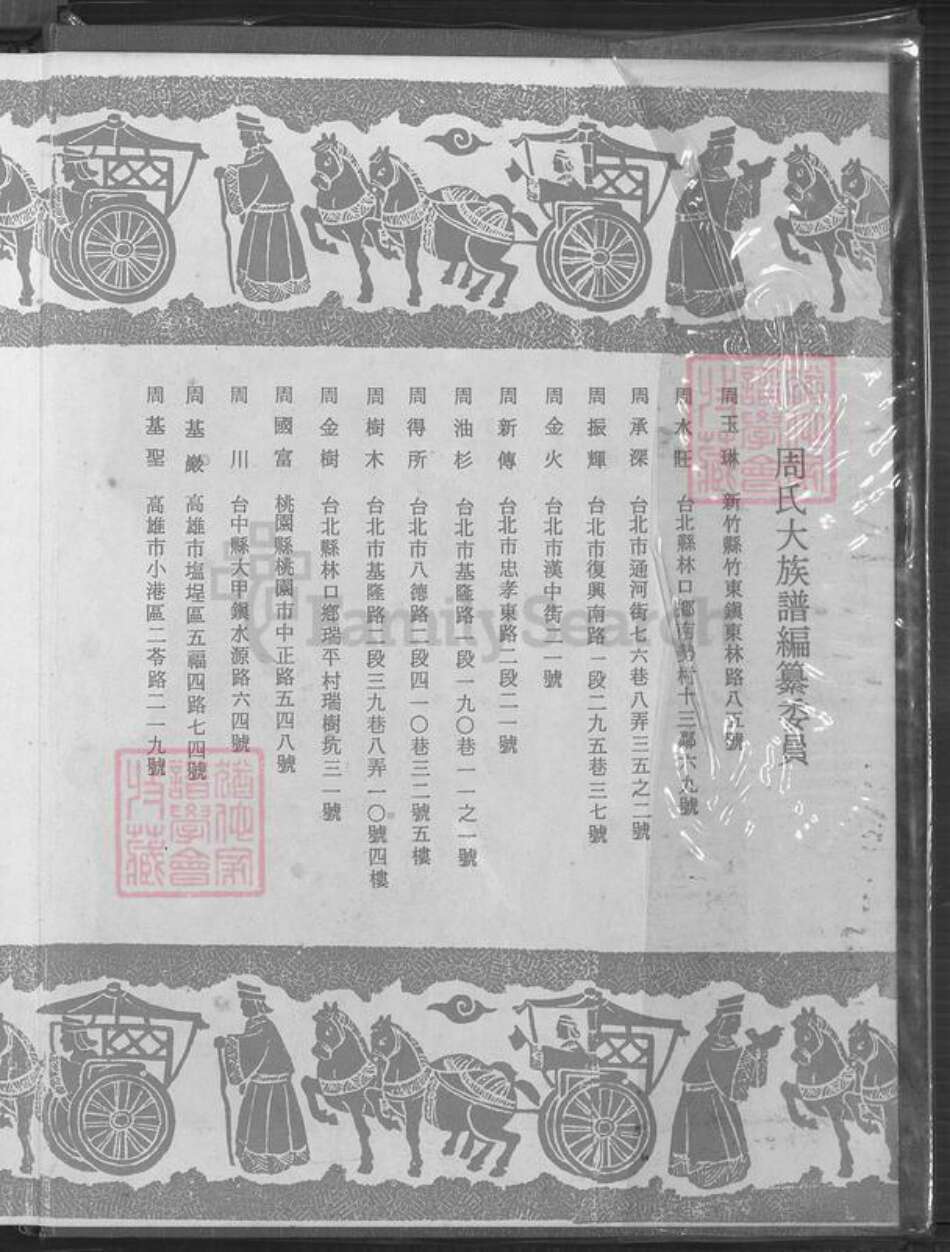 周氏大族譜編纂委員
周玉琳 新竹縣竹東鎭東林路八五號
周水旺 台北縣林口鄉南勢村十三鄰六九號
周承深 台北市通河街七六巷八弄三五之二號
周振輝 台北市復興南路一段二九五巷三七號
周金火 台北市漢中街一二號
周新傳 台北市忠孝東路二段二一號
周油杉 台北市基隆路一段一九〇巷一一之一號
周得所 台北市八德路二段四一〇巷三二號五樓
周樹木 台北市基隆路一段三九巷八弄一〇號四樓
周金樹 台北縣林口鄉瑞平村瑞樹坑三一號
周國富 桃園縣桃園市中正路五四八號
周川 台中縣大甲鎭水源路六四號
周基巖 高雄市塩埕區五福四路七四號
周基聖 高雄市小港區二苓路二一九號
FamilySearch
譜學會